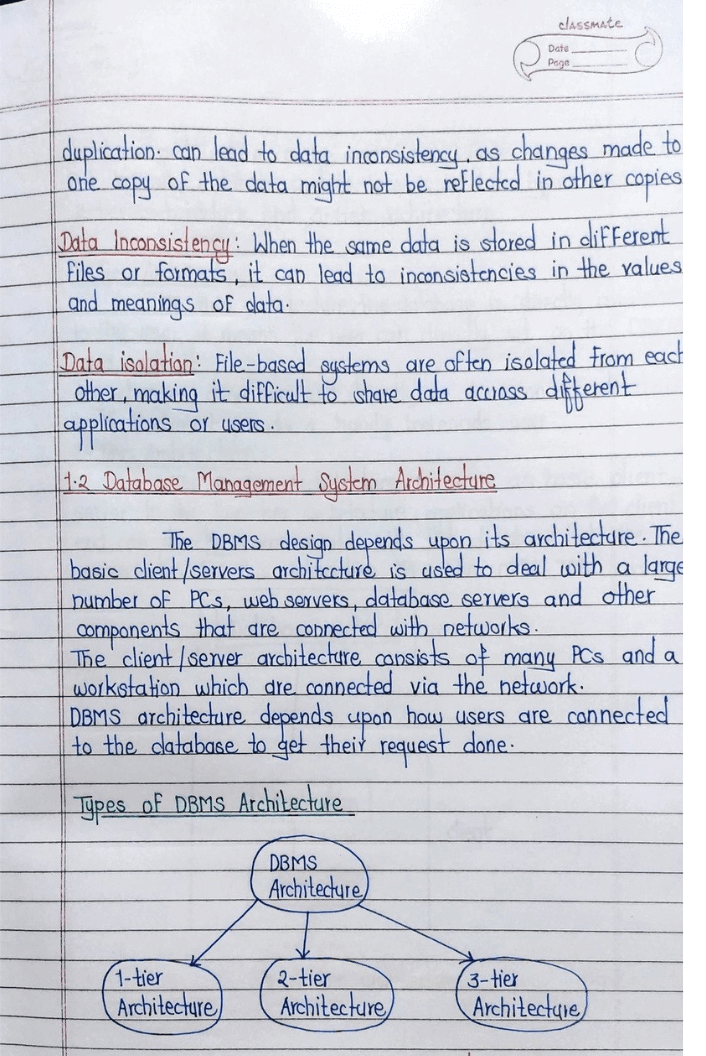 classmate
Date
Page
duplication. can lead to data inconsistency, as changes made to
one copy of the data might not be reflected in other copies
Data Inconsistency: When the same data is stored in different
files or formats, it can lead to inconsistencies in the values
and meanings of data.
Data isolation: File-based systems are often isolated from each
other, making it difficult to share data accross different
applications or users.
1.2 Database Management System Architecture
The DBMS design depends upon its architecture. The
basic client/servers architecture is used to deal with a large
number of PCs, web servers, database servers and other
components that are connected with networks.
The client/server architecture consists of many PCs and a
workstation which are connected via the network.
DBMS architecture depends upon how users are connected
to the database to get their request done.
Types of DBMS Architecture
DBMS
Architecture
1-tier
Architecture
2-tier
Architecture
3-tier
Architecture